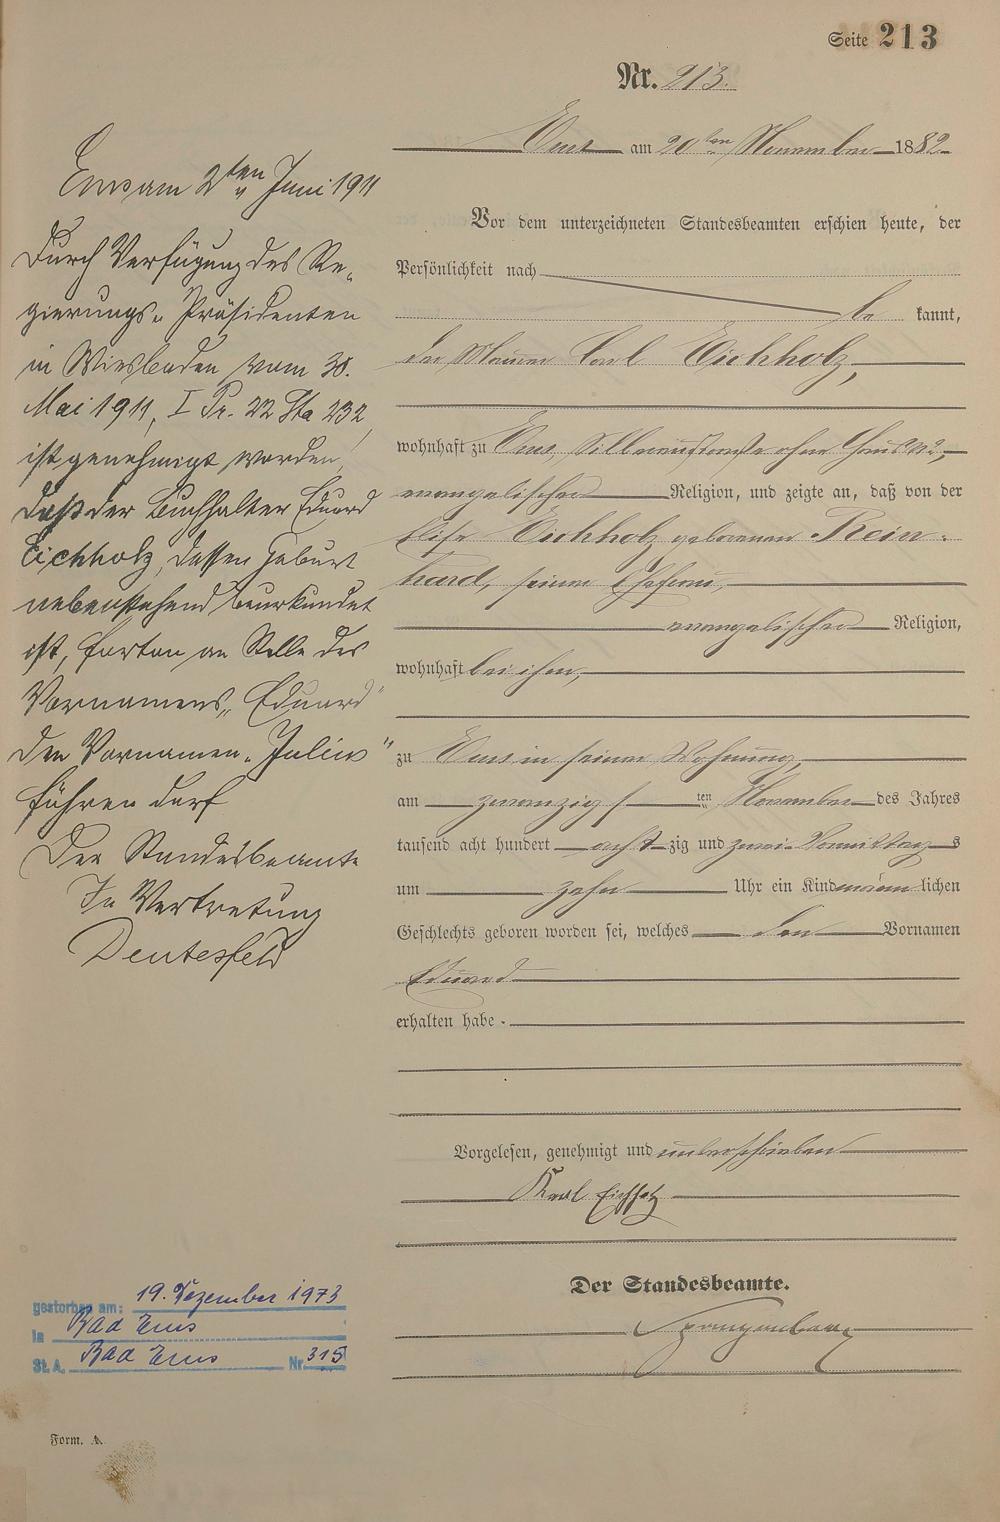 Seite 213
Nr. 213.
Ems am 20ten November 1882
Vor dem unterzeichneten Standesbeamten erschien heute, der
Persönlichkeit nach
be kannt,
der Maurer Carl Eichholz,
wohnhaft zu Ems, Silberaustraße ohne Haus No,
evangelischer Religion, und zeigte an, daß von der
Elise Eichholz geborenen Rein-
hard, seiner Ehefrau,
evangelischer Religion,
wohnhaft bei ihm,
zu Ems in seiner Wohnung,
am zwanzigs ten November des Jahres
tausend acht hundert acht zig und zwei Vormittag s
um zehn Uhr ein Kind männ lichen
Geschlechts geboren worden sei, welches den Vornamen
Eduard
erhalten habe.
Vorgelesen, genehmigt und unterschrieben
Karl Eichholz
Der Standesbeamte.
Ems am 2ten Juni 1911
Durch Verfügung des Re-
gierungs-Präsidenten
in Wiesbaden vom 30.
Mai 1911, I Pr. 22 Sta 232,
ist genehmigt worden,
daß der Buchhalter Eduard
Eichholz, dessen Geburt
nebenstehend beurkundet
ist, fortan an Stelle des
Vornamens „Eduard"
den Vornamen „Julius"
führen darf
Der Standesbeamte
In Vertretung
Deutesfeld
gestorben am: 19. Dezember 1973
in Bad Ems
St. A. Bad Ems Nr. 315
Form. A.